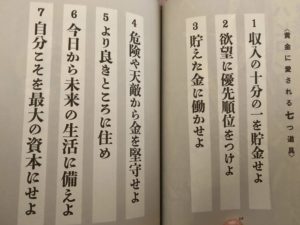 〈黄金に愛される七つ道具〉
1 収入の十分の一を貯金せよ
2 欲望に優先順位をつけよ
3 貯えた金に働かせよ
4 危険や天敵から金を堅守せよ
5 より良きところに住め
6 今日から未来の生活に備えよ
7 自分こそを最大の資本にせよ